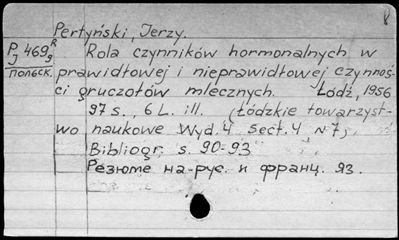 Pertyński, Jerzy.
P 469 R
J 9
польск.
Rola czynników hormonalnych w
prawidłowej i nieprawidłowej czynnoś-
ci gruczołów mlecznych. Łódź, 1956
97 s., 6 L. ill. (Łódzkie towarzyst-
wo naukowe Wyd. 4 Sect. 4 N 7)
Bibliogr. s. 90-93
Резюме на рус. и франц. яз.